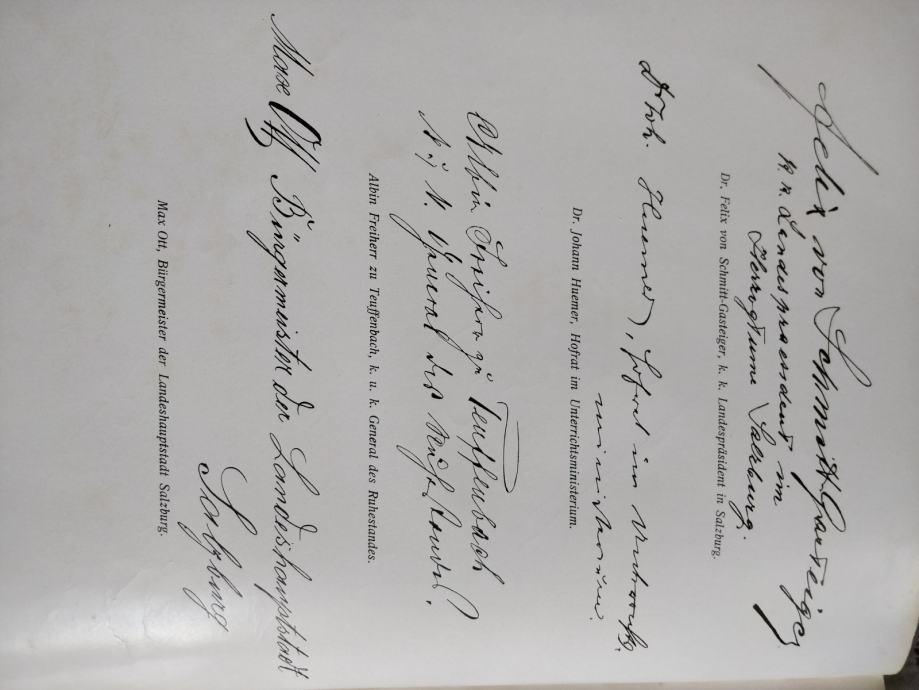 Felix von Schmitt-Gasteiger
k. k. Landespraesident im
Herzogtume Salzburg.
Dr. Felix von Schmitt-Gasteiger, k. k. Landespräsident in Salzburg.
Dr Joh. Huemer, Hofrat im Unterrichts-
ministerium.
Dr. Johann Huemer, Hofrat im Unterrichtsministerium.
Albin Freiherr zu Teuffenbach
k. u. k. General des Ruhestandes.
Albin Freiherr zu Teuffenbach, k. u. k. General des Ruhestandes.
Max Ott Bürgermeister der Landeshauptstadt
Salzburg
Max Ott, Bürgermeister der Landeshauptstadt Salzburg.